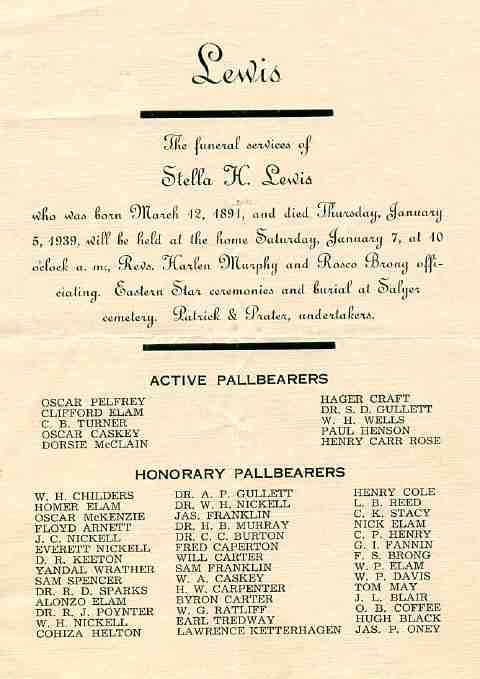 Lewis
The funeral services of
Stella H. Lewis
who was born March 12, 1891, and died Thursday, January
5, 1939, will be held at the home Saturday, January 7, at 10
o'clock a. m., Revs. Harlen Murphy and Rosco Brong offi-
ciating. Eastern Star ceremonies and burial at Salyer
cemetery. Patrick & Prater, undertakers.
ACTIVE PALLBEARERS
OSCAR PELFREY
CLIFFORD ELAM
C. B. TURNER
OSCAR CASKEY
DORSIE McCLAIN
HAGER CRAFT
DR. S. D. GULLETT
W. H. WELLS
PAUL HENSON
HENRY CARR ROSE
HONORARY PALLBEARERS
W. H. CHILDERS
HOMER ELAM
OSCAR McKENZIE
FLOYD ARNETT
J. C. NICKELL
EVERETT NICKELL
D. R. KEETON
YANDAL WRATHER
SAM SPENCER
DR. R. D. SPARKS
ALONZO ELAM
DR. R. J. POYNTER
W. H. NICKELL
COHIZA HELTON
DR. A. P. GULLETT
DR. W. H. NICKELL
JAS. FRANKLIN
DR. H. B. MURRAY
DR. C. C. BURTON
FRED CAPERTON
WILL CARTER
SAM FRANKLIN
W. A. CASKEY
H. W. CARPENTER
BYRON CARTER
W. G. RATLIFF
EARL TREDWAY
LAWRENCE KETTERHAGEN
HENRY COLE
L. B. REED
C. K. STACY
NICK ELAM
C. P. HENRY
G. I. FANNIN
F. S. BRONG
W. P. ELAM
W. P. DAVIS
TOM MAY
J. L. BLAIR
O. B. COFFEE
HUGH BLACK
JAS. P. ONEY